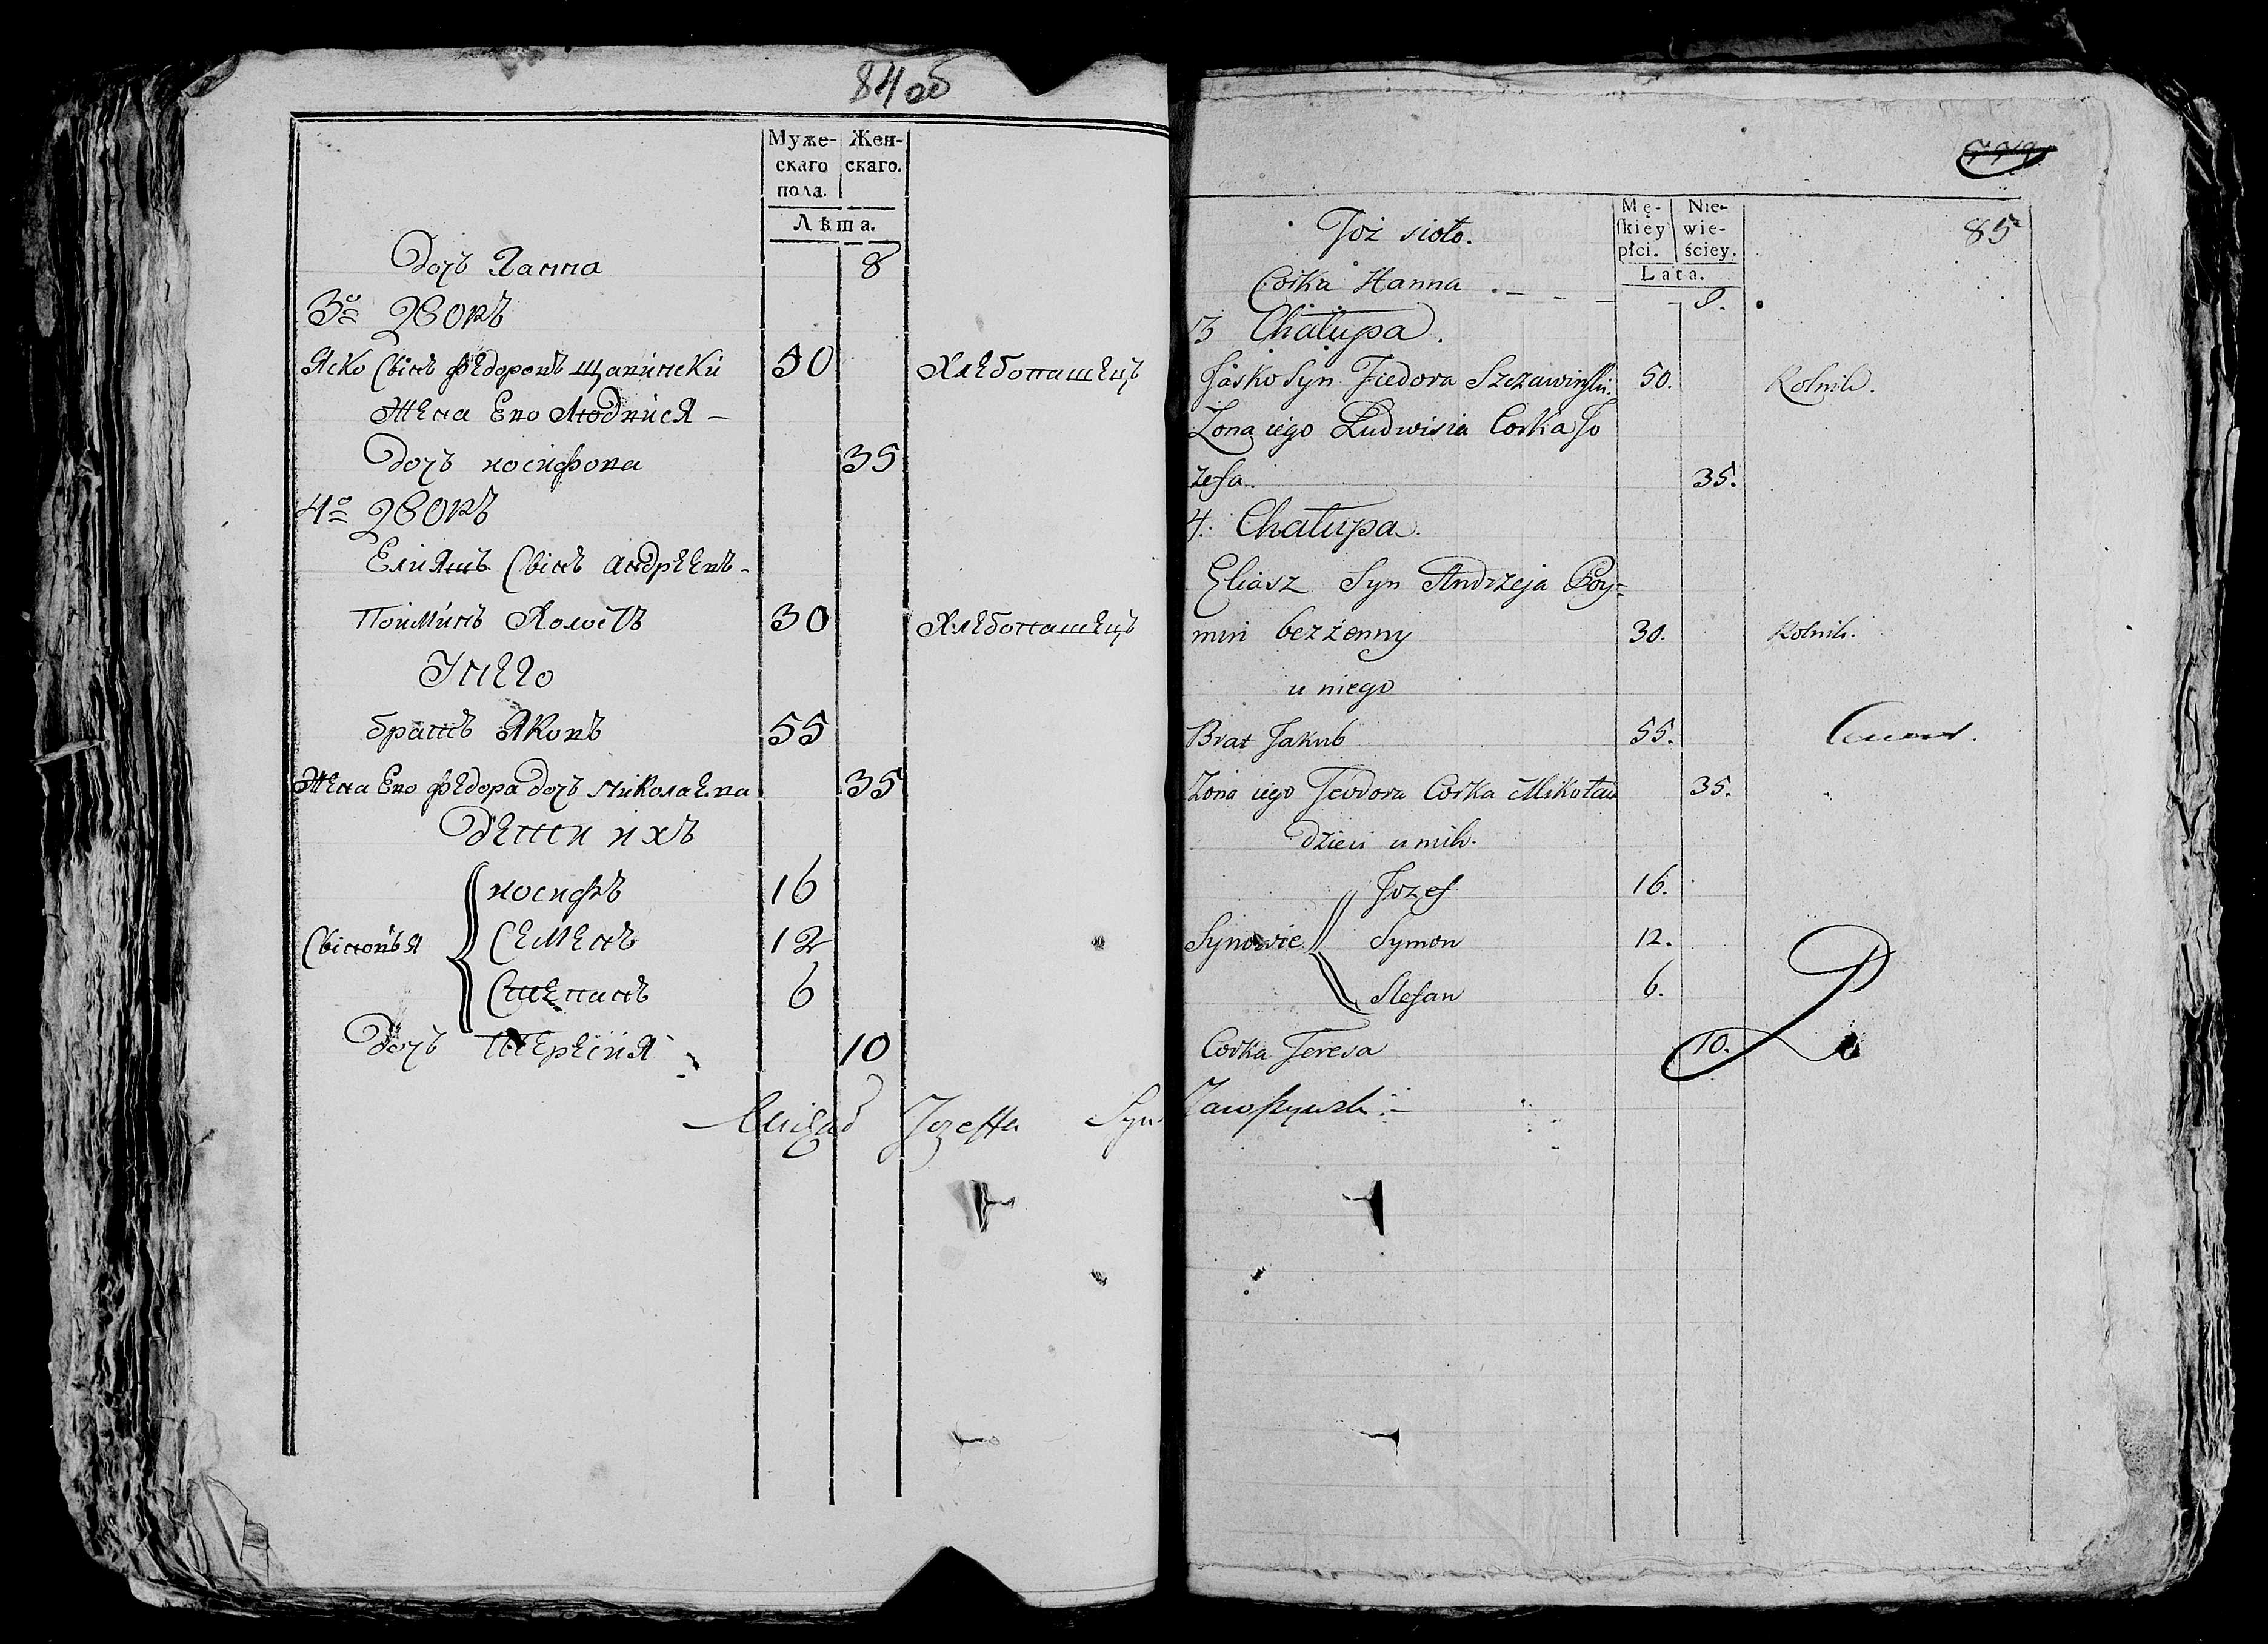 84 об
Муже- Жен-
скаго скаго.
пола.
Лѣта.
Дочъ Ганна 8
3º Дворъ
Яско Сынъ Федоровъ Щавински 50 Хлебопашецъ
Жена Его Людвися —
Дочъ иосифова 35
4º Дворъ
Елияшъ Сынъ андрѣевъ -
Поиминъ Холостъ 30 Хлебопашецъ
У него
братъ Яковъ 55
Жена Его федора дочъ миколаева 35
Дети ихъ
иосифъ 16
Сыновья Семенъ 12
Степанъ 6
Дочъ Терессия 10
Jozeffa Syn
85
Mę- Nie-
skiey wie-
płci. ściey.
Lata.
Toż sioło.
Corka Hanna . — — — 8.
3 Chałupa.
Jasko Syn Fiedora Szczawinski. 50. Rolnik.
Zona iego Ludwisia Corka Jo
zefa. 35.
4. Chałupa.
Eliasz Syn Andrzeja Poy=
min bezżenny 30. Rolnik.
u niego
Brat Jakub 55.
Zona iego Teodora Corka Mikołaia 35.
dzieci u nich.
Jozef 16.
Synowie Symon 12.
Stefan 6.
Corka Teresa 10.